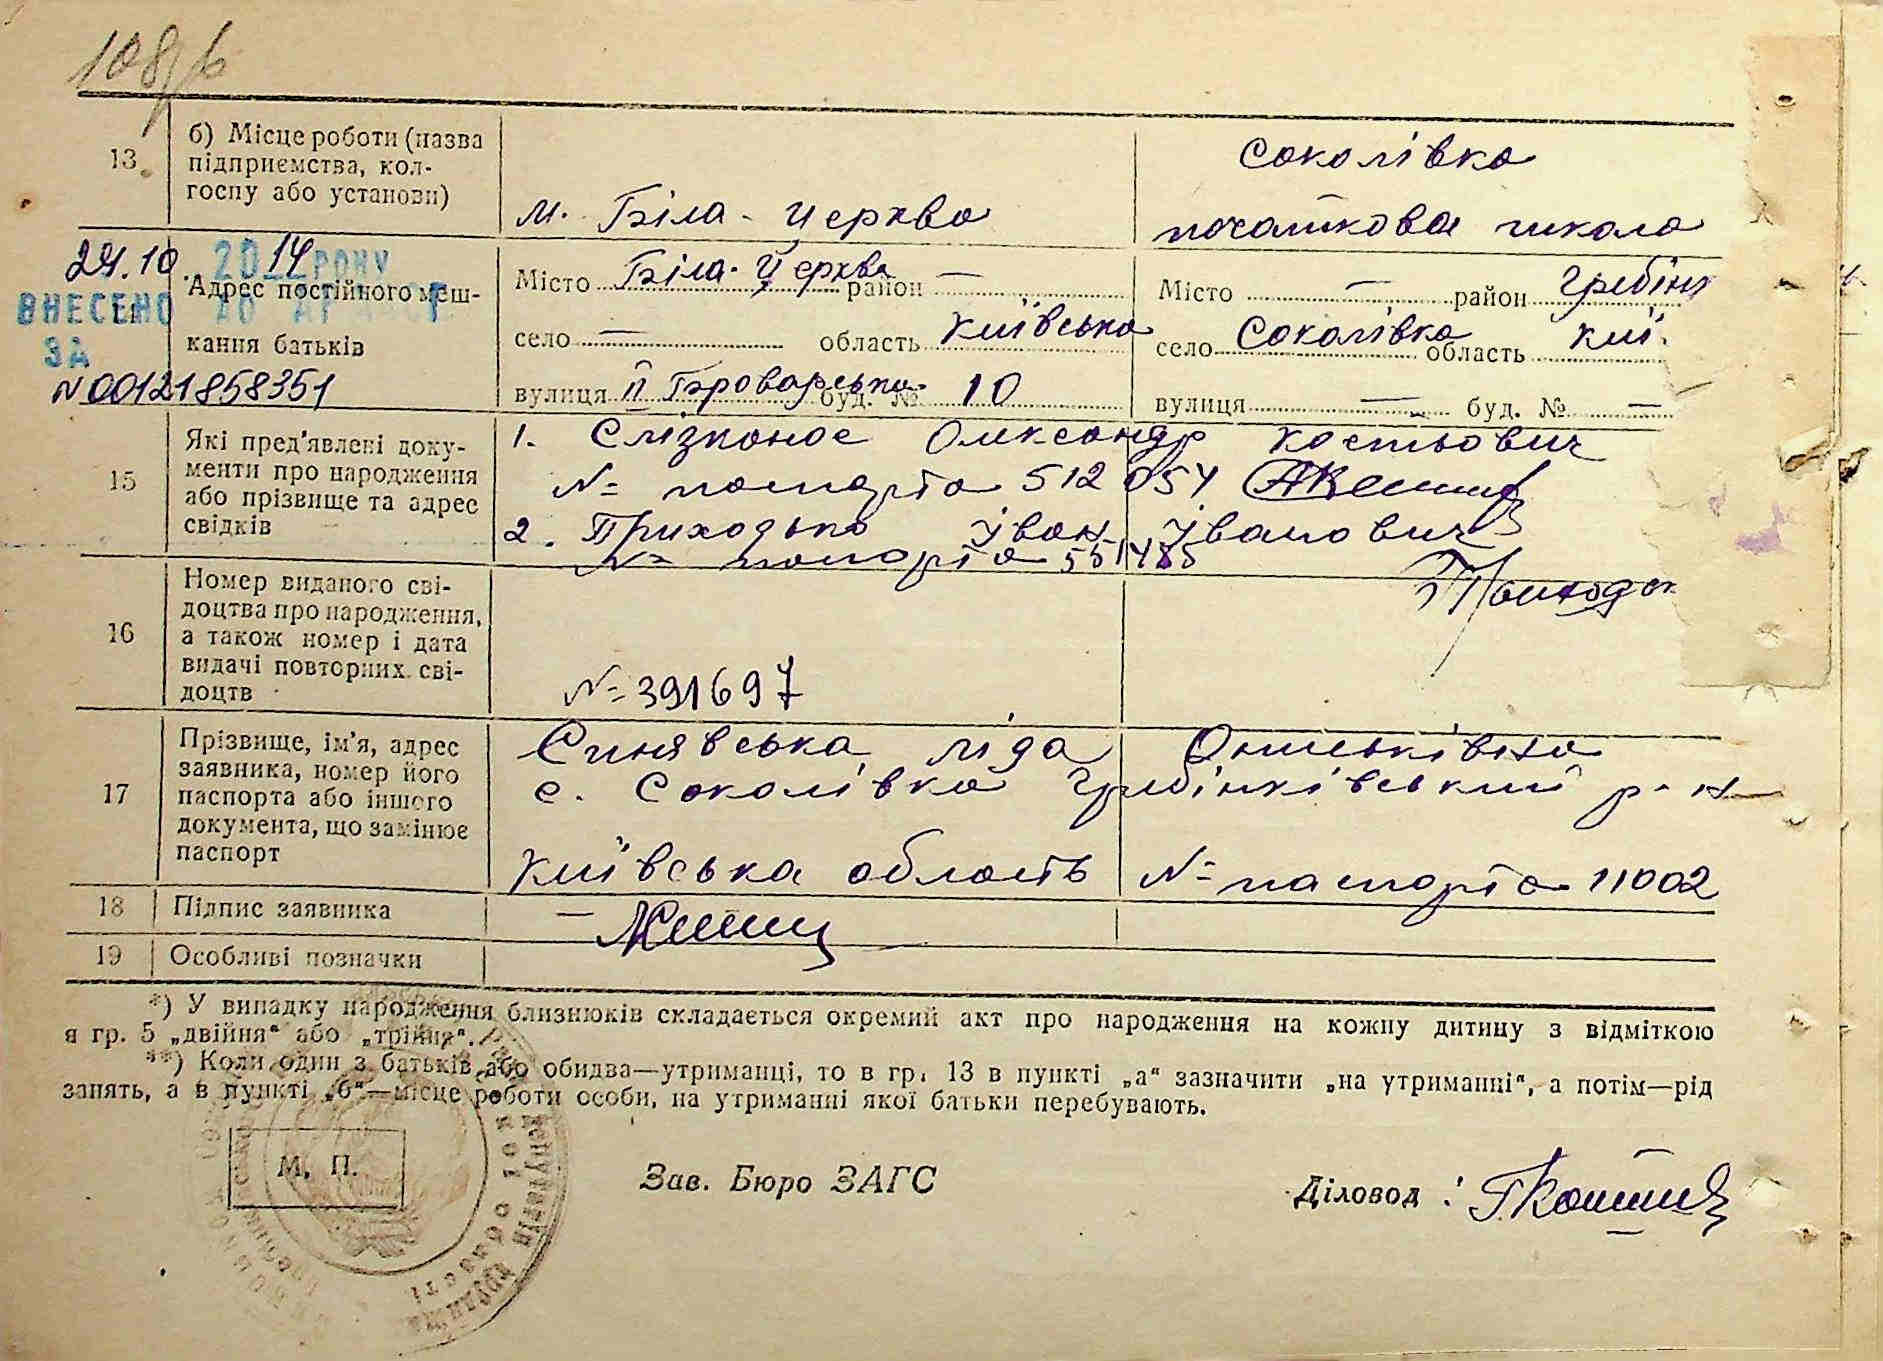 108/б
13
б) Місце роботи (назва
підприємства, кол-
госпу або установи)
м. Біла-Церква
Соколівка
початкова школа
24.10.2014 РОКУ
ВНЕСЕНО ДО ДРАЦСГ
ЗА
N 00121858351
Адрес постійного меш-
кання батьків
Місто Біла-Церква район —
село — область Київська
вулиця ІІ Броварська буд. № 10
Місто — район Гребінк
село Соколівка область Киї.
вулиця — буд. № —
15
Які пред'явлені доку-
менти про народження
або прізвище та адрес
свідків
1. Слізконос Олександр Костьович
№ паспорта 512054
2. Приходько Іван Іванович
№ паспорта 551485
16
Номер виданого сві-
доцтва про народження,
а також номер і дата
видачі повторних сві-
доцтв
№ 391697
17
Прізвище, ім'я, адрес
заявника, номер його
паспорта або іншого
документа, що замінює
паспорт
Синявська Ліда Ониськівна
с. Соколівка Гребінківський р-н
Київська область № паспорта 11002
18
Підпис заявника
19
Особливі позначки
*) У випадку народження близнюків складається окремий акт про народження на кожну дитину з відміткою
в гр. 5 „двійня“ або „трійня“.
**) Коли один з батьків або обидва—утриманці, то в гр. 13 в пункті „а“ зазначити „на утриманні“, а потім—рід
занять, а в пункті „б“—місце роботи особи, на утриманні якої батьки перебувають.
М. П.
Зав. Бюро ЗАГС
Діловод: